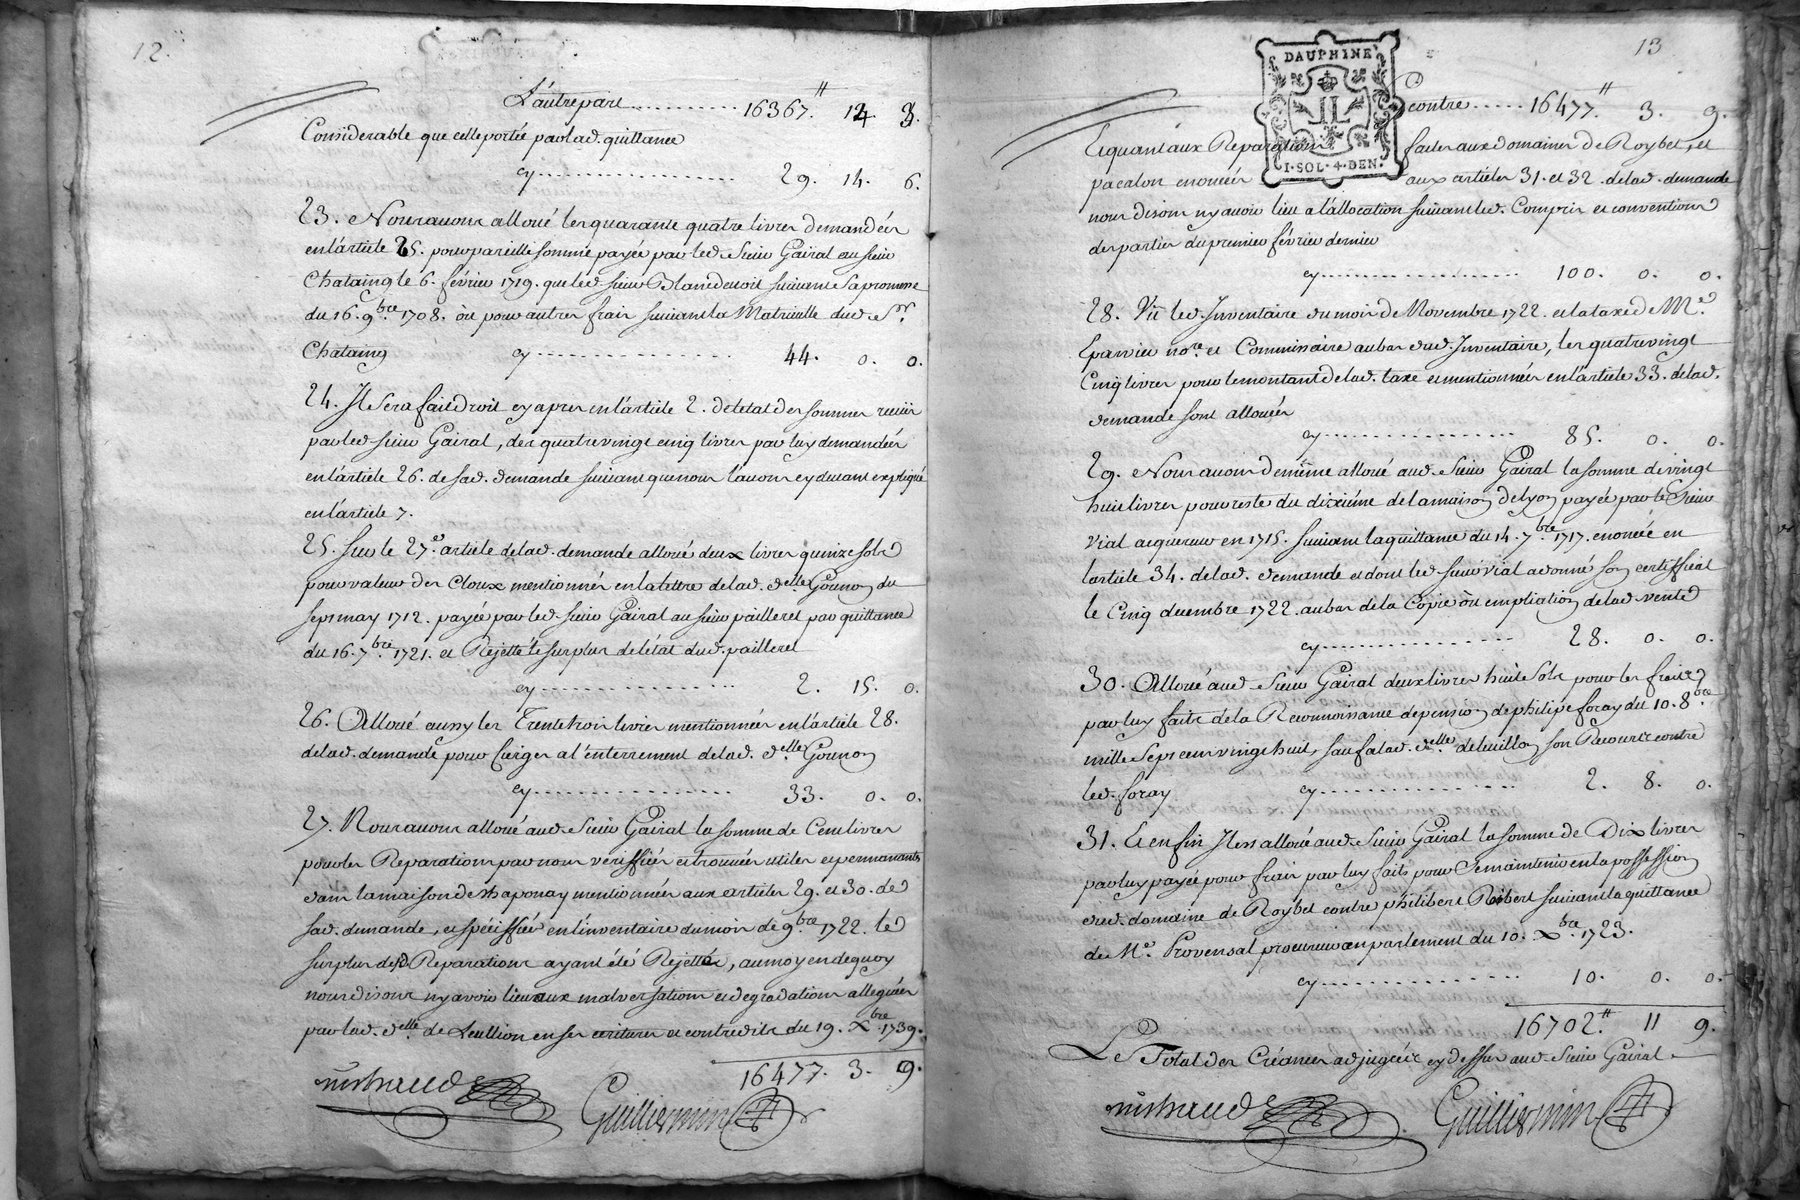 12.
L'autrepart ............ 16367.# 14 3.
Considerable que celle portée par lad. quittance
cy .................. 29. 14. 6.
23. Nous avons alloué les quarante quatre livres demandées
en l'article 25. pour pareille somme payée par led. Sieur Gairal au sieur
Chataing le 6. février 1719. que led. sieur Blanc devoit suivant sa promesse
du 16. 9.bre 1708. ou pour autres frais suivant la Matricule dud. Sr.
Chataing cy .................. 44. 0. 0.
24. Il sera fait droit cy apres en l'article 2. de l'etat des sommes reçües
par led. sieur Gairal, des quatre vingt cinq livres par luy demandées
en l'article 26. de sad. demande suivant que nous l'avons cy devant expliqué
en l'article 7.
25. Sur le 27.e article de lad. demande alloué deux livres quinze sols
pour valeur des Cloux mentionnés en la lettre de lad. d.elle Gounon du
sept may 1712. payée par led. sieur Gairal au sieur pailleret par quittance
du 16. 7.bre 1721. et Rejetté le surplus de l'état dud. pailleret
cy .................. 2. 15. 0.
26. Alloué aussy les Trente trois livres mentionnées en l'article 28.
de lad. demande pour Cierges a l'enterrement de lad. d.elle Gounon
cy .................. 33. 0. 0.
27. Nous avons alloué aud. Sieur Gairal la somme de Cent livres
pour les Reparations par nous verifiées et trouvées utiles et permanantes
dans la maison de Chaponay mentionnées aux articles 29. et 30. de
sad. demande, et specifiées en l'inventaire du mois de 9.bre 1722. le
surplus desd. Reparations ayant été Rejetté, au moyen de quoy
nous disons n'y avoir lieu aux malversations et degradations alleguées
par lad. d.elle de Leullion en ses ecritures et contredits du 19. X.bre 1739.
16477. 3. 9.
michaud Guilliermin
13
DAUPHINE
I·SOL·4·DEN·
contre ...... 16477.# 3. 9.
Et quant aux Reparations faites aux domaines de Roybet, et
pacalon enoncées aux articles 31. et 32. de lad. demande
nous disons n'y avoir lieu a l'allocation suivant led. Compris et conventions
des parties du premier février dernier
cy .................. 100. 0. 0.
28. Vû led. Inventaire du mois de Novembre 1722. et la taxe de M.e
Eparvier no.re et Commissaire au bas dud. Inventaire, les quatre vingt
Cinq livres pour le montant de lad. taxe et mentionnées en l'article 33. de lad.
demande sont allouées
cy .................. 85. 0. 0.
29. Nous avons de même alloué aud. Sieur Gairal la somme de vingt
huit livres pour reste du dixiême de la maison de Lyon payée par le Sieur
Vial acquereur en 1715. suivant la quittance du 14. 7.bre 1717. enoncée en
l'article 34. de lad. demande et dont led. sieur vial a donné son certifficat
le Cinq decembre 1722. au bas de la Copie ou empliation de lad. vente
cy .................. 28. 0. 0.
30. Alloué aud. Sieur Gairal deux livres huit Sols pour les frais
par luy faits de la Reconnoissance de pension de philipe foray du 10. 8.bre
mille Sept cent vingt huit, sauf a lad. d.elle de Leullion son Recours contre
led. foray cy .................. 2. 8. 0.
31. Et enfin Il est alloué aud. Sieur Gairal la somme de Dix livres
par luy payée pour frais par luy faits pour se maintenir en la possession
dud. domaine de Roybet contre philibert Robert suivant la quittance
de M.e Provensal procureur en parlement du 10. X.bre 1723.
cy .................. 10. 0. 0.
16702.# 11 9.
Le Total des Créances adjugées cy dessus aud. Sieur Gairal
michaud Guilliermin